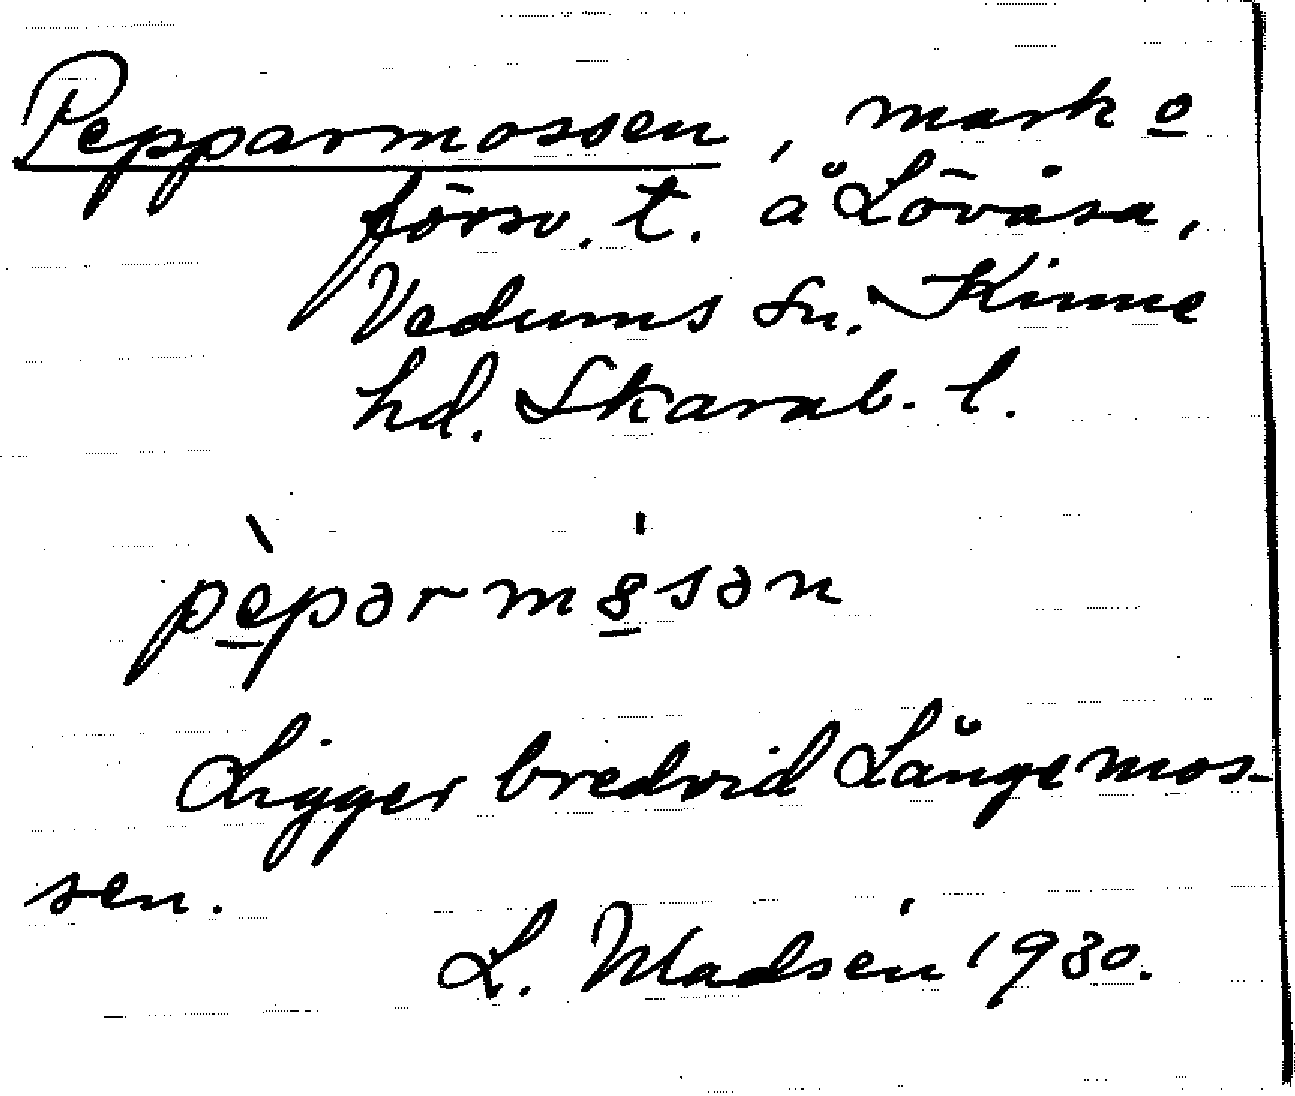 Pepparmossen, mark o
försv. t. å Lövåsa,
Vedums sn. Kinne
hd. Skarab. l.
pèpərm8sən
Ligger bredvid Långemos-
sen.
L. Madsén 1930.